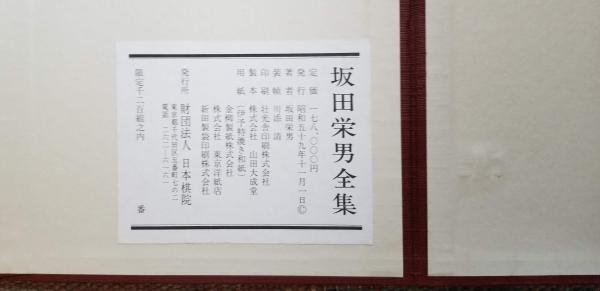 坂田栄男全集
定価 一七八、〇〇〇円
発行 昭和五十九年十一月一日©
著者 坂田栄男
装幀 川添清
印刷 壮光舎印刷株式会社
製本 株式会社 山田大成堂
用紙 (伊予特漉き和紙)
金柳製紙株式会社
株式会社 東京洋紙店
新田製袋印刷株式会社
発行所 財団法人 日本棋院
東京都千代田区五番町七の二
電話 二六二-六一六一
限定千二百組之内 番